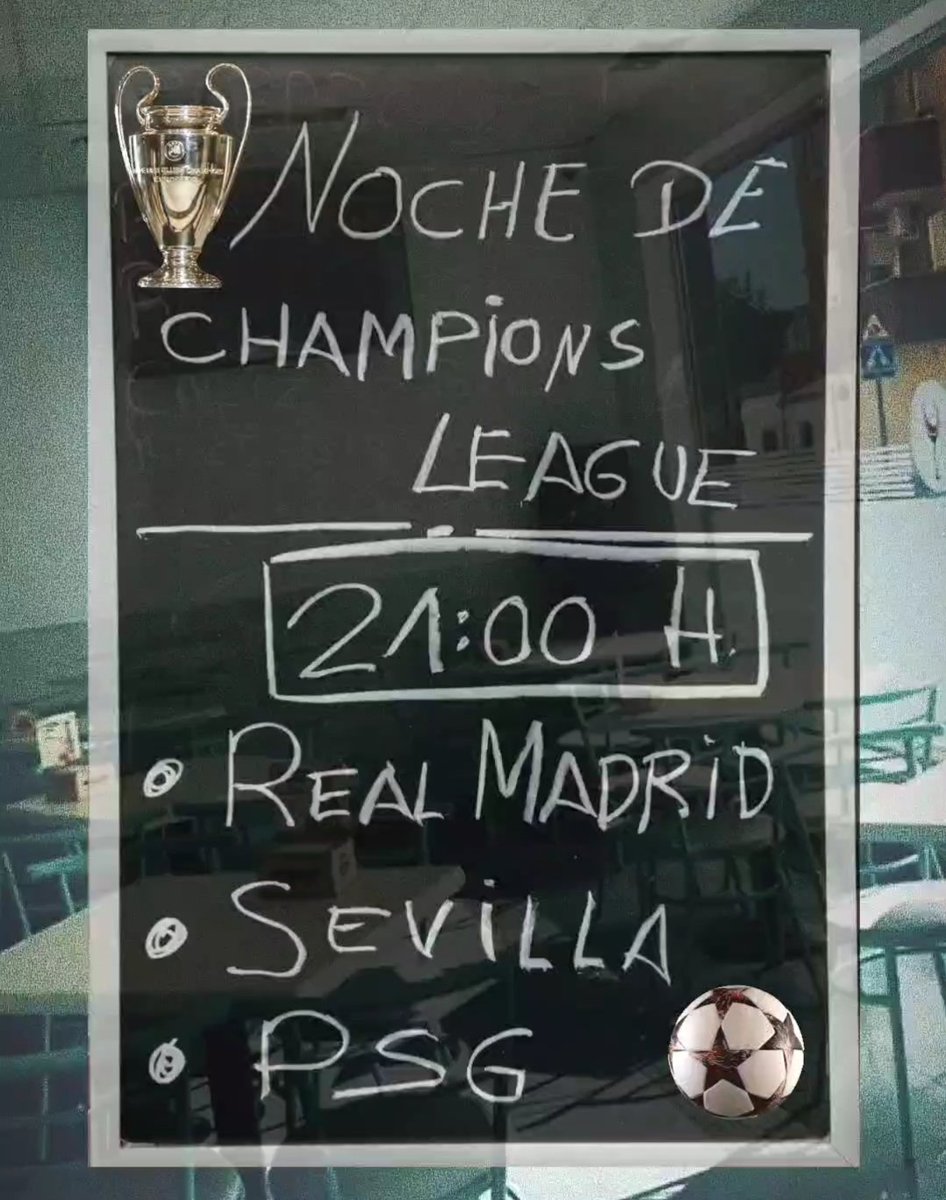 NOCHE DE
CHAMPiONS
LEAGUE
21:00 H.
REAL MADRiD
SEViLLA
PSG